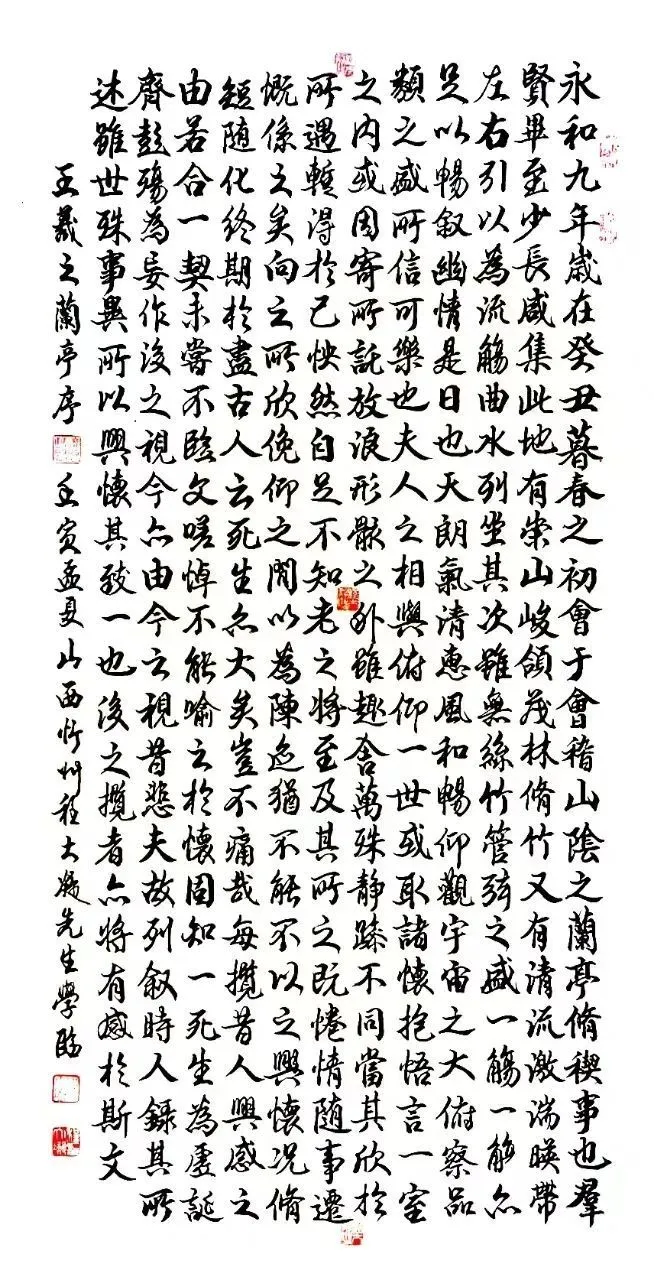 永和九年歲在癸丑暮春之初會于會稽山陰之蘭亭脩稧事也羣
賢畢至少長咸集此地有崇山峻領茂林脩竹又有清流激湍暎帶
左右引以為流觴曲水列坐其次雖無絲竹管弦之盛一觴一亦
足以暢叙幽情是日也天朗氣清惠風和暢仰觀宇宙之大俯察品
類之盛所信可樂也夫人之相與俯仰一世或取諸懷抱悟言一室
之內或因寄所託放浪形骸之外雖趣舍萬殊靜躁不同當其欣於
所遇暫得於己怏然自足不知老之將至及其所之既惓情随事遷
慨係之矣向之所欣俛仰之閒以為陳迹猶不能不以之興懷況脩
短随化終期於盡古人云死生亦大矣豈不痛哉每攬昔人興感之
由若合一契未嘗不臨文嗟悼不能喻之於懷固知一死生為虛誕
齊彭殤為妄作後之視今亦由今之視昔悲夫故列叙時人錄其所
述雖世殊事異所以興懷其致一也後之攬者亦將有感於斯文
王羲之蘭亭序 壬寅孟夏山西忻州程大凝先生學臨